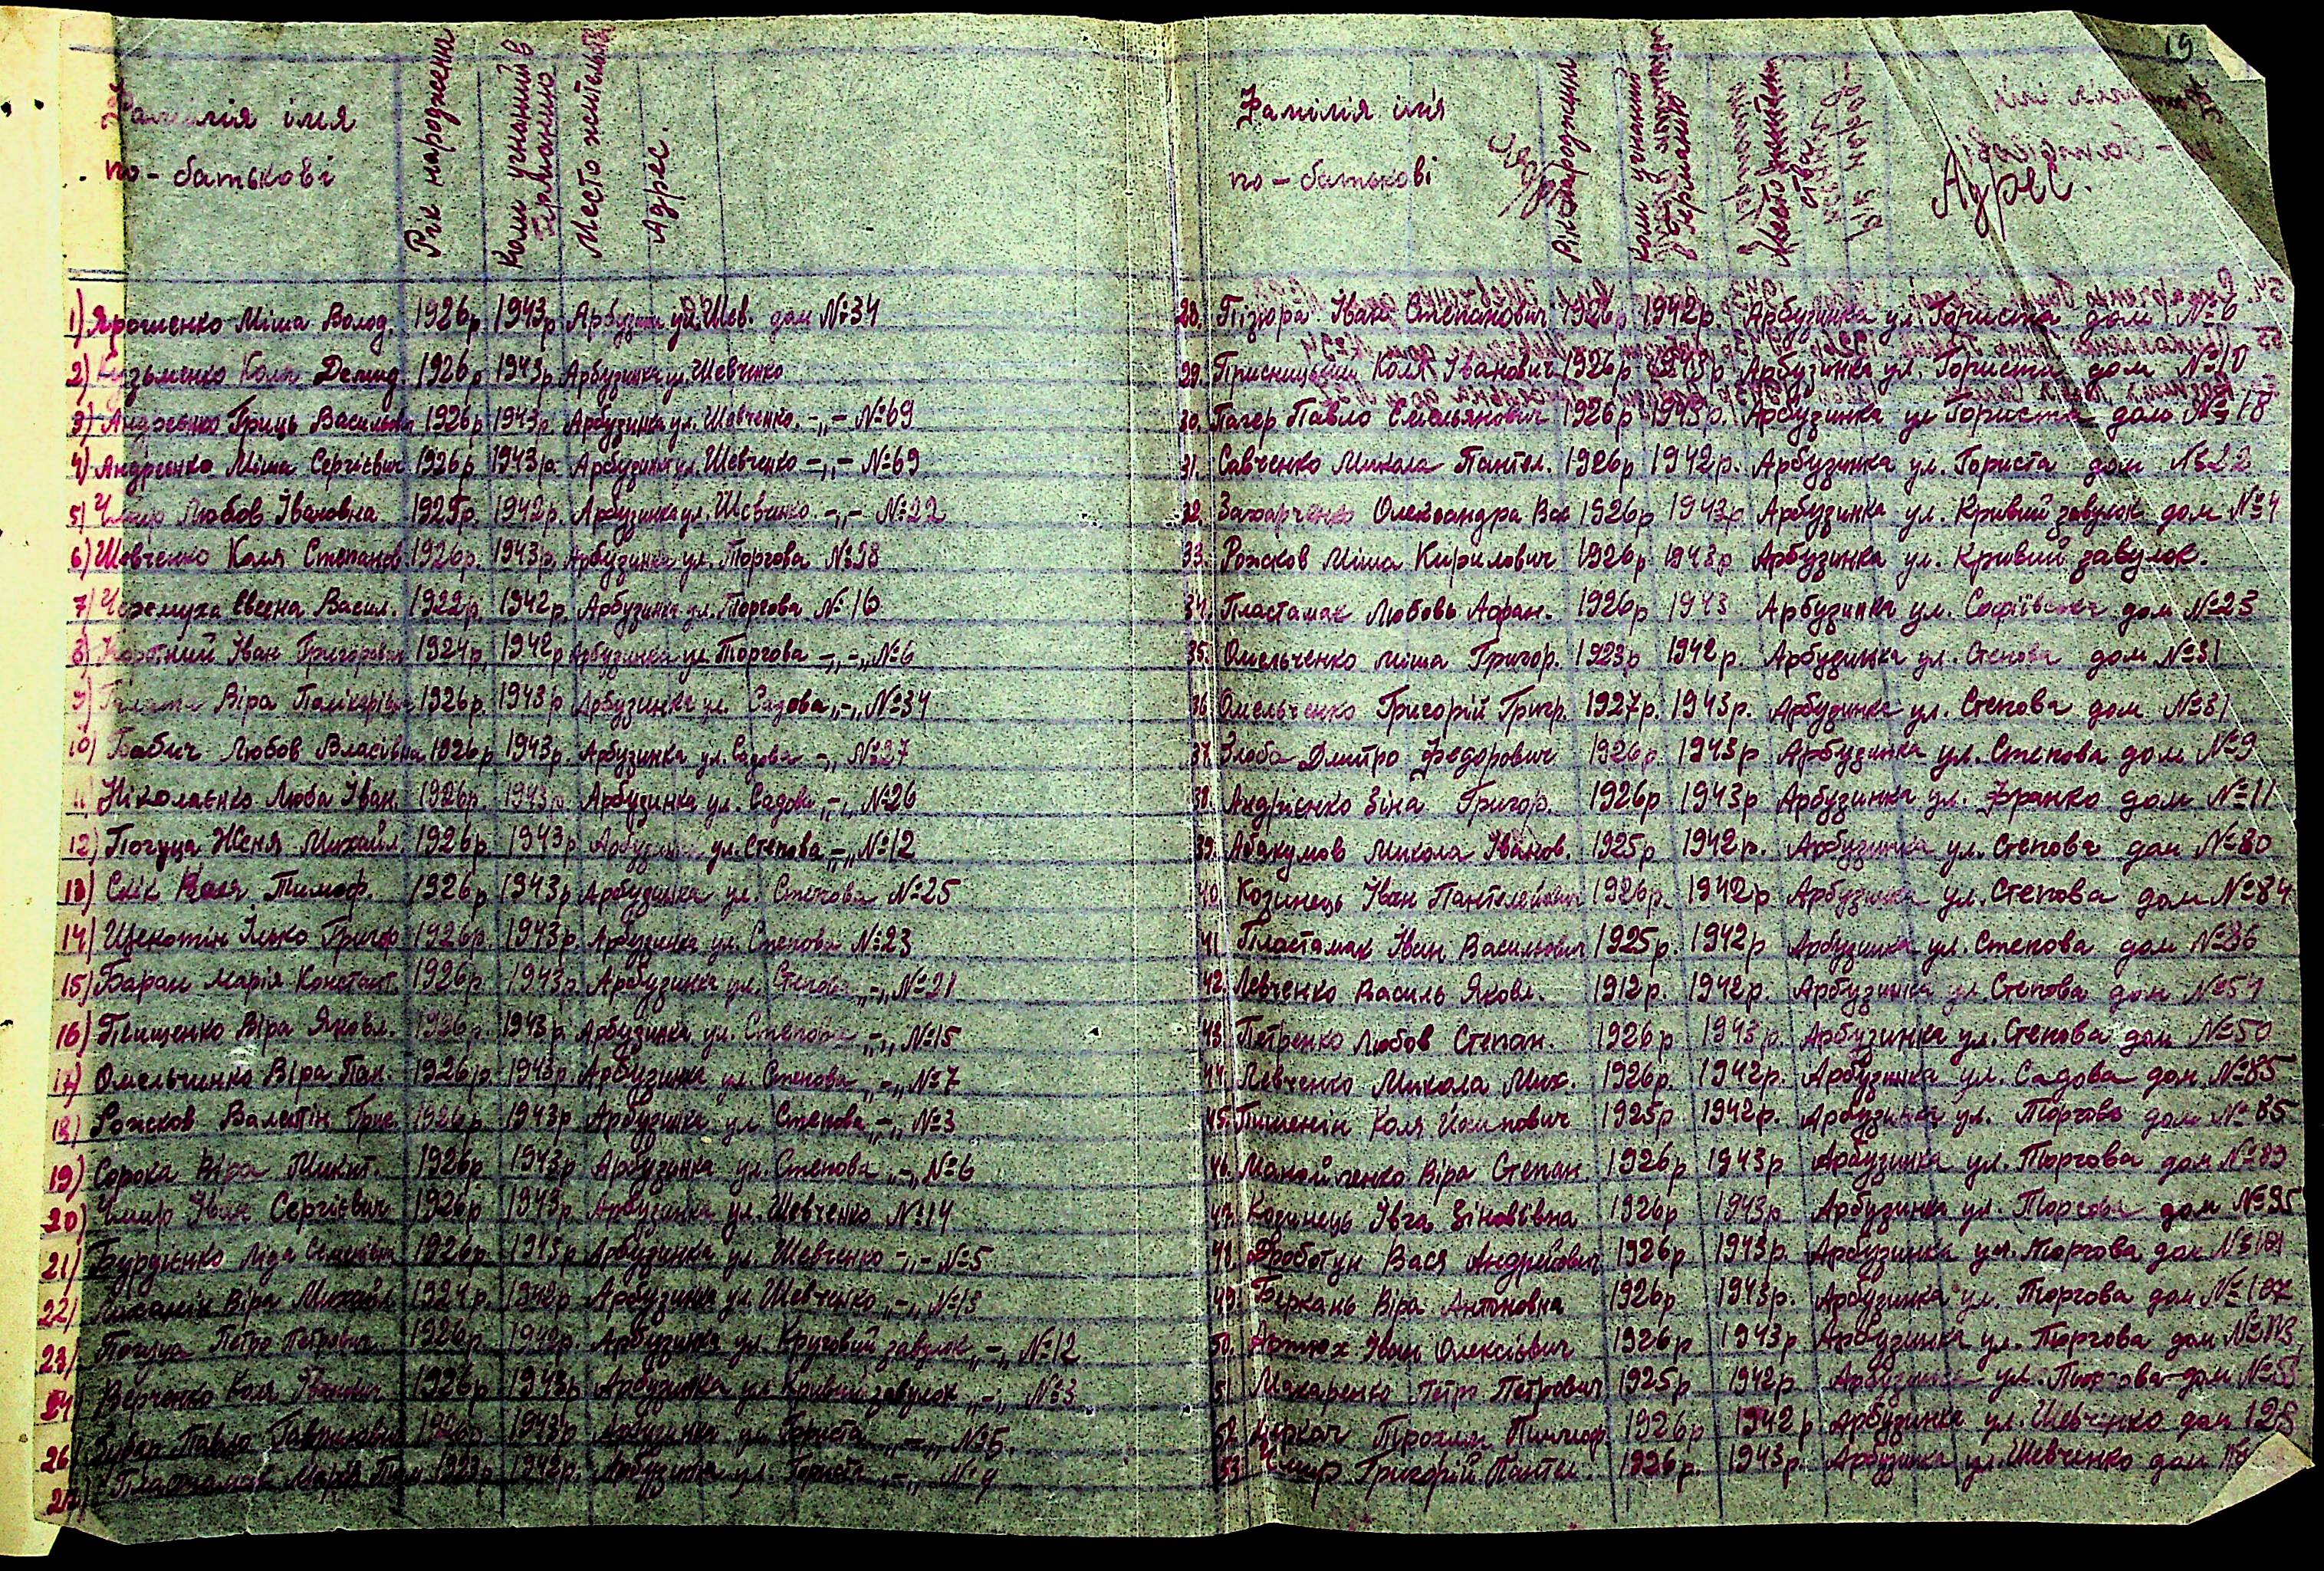 19
Фамілія імя
по-батькові
Рік народження
Коли угнаний в Германію
Место жительства
Адрес.
1) Ярошенко Міша Волод. 1926р. 1943р. Арбузинка ул. Шев. дом №34
2) Кузьменко Коля Демид. 1926р. 1943р. Арбузинка ул. Шевченко
3) Андрєєнко Гриць Васильов 1926р 1943р. Арбузинка ул. Шевченко -„- №69
4) Андрєєнко Міша Сергієвич 1926р 1943р. Арбузинка ул. Шевченко -„- №69
5) Чмир Любов Івановна 1925р. 1942р. Арбузинка ул. Шевченко -„- №22
6) Шевченко Каля Степанов. 1926р. 1943р. Арбузинка ул. Торгова №58
7) Черемуха Евгена Васил. 1922р. 1942р. Арбузинка ул. Торгова №16
8) Іван Григорович 1924р. 1942р Арбузинка ул. Торгова -„-„ №6
9) Віра 1926р. 1943р Арбузинка ул. Садова „-„ №34
10) Бабич Любов Власівна 1926р 1943р. Арбузинка ул. Садова -„ №27
11) Ніколаєнко Люба Іван. 1926р. 1943р. Арбузинка ул. Садова -„ №26
12) Погуца Женя Михайл. 1926р. 1943р Арбузинка ул. Степова „-„ №12
13) Тимоф. 1926р 1943р Арбузинка ул. Степова №25
14) Щекотін Ілько Григор 1926р. 1943р. Арбузинка ул. Степова №23
15) Баран Марія Констант. 1926р. 1943р. Арбузинка ул. Степова „-„ №21
16) Віра Яковл. 1926р. 1943р. Арбузинка ул. Степова „-„ №15
17) Омельчинко Віра Пан. 1926р. 1943р. Арбузинка ул. Степова „-„ №7
18) Рожков Валентін Григ. 1926р. 1943р Арбузинка ул. Степова „-„ №3
19) Сорока Віра Микит. 1926р. 1943р Арбузинка ул. Степова „-„ №6
20) Чмир Іван Сергієвич 1926р 1943р Арбузинка ул. Шевченко №14
21) Бурдієнко Ліда 1926р. 1943р Арбузинка ул. Шевченко -„- №5
22) Віра Михайл 1924р. 1942р Арбузинка ул. Шевченко „-„ №13
23) Погуца Петро Петрович 1926р. 1942р. Арбузинка ул. Круговий завулок „-„ №12
24) Верченко Коля Іванович 1926р 1943р Арбузинка ул Кривий завулок „-„ №3
26) Павло Гаврилович 1926р. 1943р Арбузинка ул. Гориста „-„ №5
27) Пластамак Марія Тим 1923р. 1942р. Арбузинка ул. Гориста „-„ №9
Фамілія імя
по-батькові
Рік народження
Коли угнаний в Германію
Место жительства
Адрес.
28. Гізюра Іван Степанович 1926р 1942р. Арбузинка ул. Гориста дом №6
29. Присницький Коля Іванович 1926р 1943р. Арбузинка ул. Гориста дом №10
30. Пагер Павло Емельянович 1926р 1943р. Арбузинка ул Гориста дом №18
31. Савченко Микола Пантел. 1926р 1942р. Арбузинка ул. Гориста дом №22
32. Захарченко Олександра Вас 1926р 1943р Арбузинка ул. Кривий завулок дом №4
33. Рожков Міша Кирилович 1926р 1943р Арбузинка ул. Кривий завулок.
34. Пластамак Любовь Афан. 1926р 1943 Арбузинка ул. Софіївська дом №23
35. Омельченко Міша Григор. 1923р 1942р Арбузинка ул. Степова дом №31
36 Омельченко Григорій Григр. 1927р. 1943р. Арбузинка ул. Степова дом №31
37. Злоба Дмитро Федорович 1926р 1943р Арбузинка ул. Степова дом №9
38. Андрієнко Зіна Григор. 1926р 1943р Арбузинка ул. Франко дом №11
39. Абакумов Микола Іванов. 1925р 1942р. Арбузинка ул. Степова дом №80
40. Козинець Іван Пантелейович 1926р. 1942р Арбузинка ул. Степова дом №84
41. Пластамак Іван Васильович 1925р. 1942р Арбузинка ул. Степова дом №86
42. Левченко Василь Яковл. 1912р. 1942р. Арбузинка ул. Степова дом №54
43. Петренко Любов Степан. 1926р 1943р. Арбузинка ул. Степова дом №50
44. Левченко Микола Мих. 1926р. 1942р. Арбузинка ул. Садова дом №85
45. Пишенін Коля Йосипович 1925р 1942р. Арбузинка ул. Торгова дом №85
46. Манойленко Віра Степан. 1926р 1943р Арбузинка ул. Торгова дом №89
47. Козинець Івга Зіновієвна 1926р 1943р. Арбузинка ул. Торгова дом №95
48. Дроботун Вася Андрійович 1926р 1943р. Арбузинка ул. Торгова дом №101
49. Беркань Віра Антоновна 1926р 1943р. Арбузинка ул. Торгова дом №107
50. Артюх Іван Олексієвич 1926р 1943р Арбузинка ул. Торгова дом №113
51. Макаренко Петро Петрович 1925р 1942р. Арбузинка ул. Торгова дом №53
52. Деркач Трохим Тимоф. 1926р 1942р Арбузинка ул. Шевченко дом 128
53. Чмир Григорій Пантел. 1926р. 1943р. Арбузинка ул. Шевченко дом 118